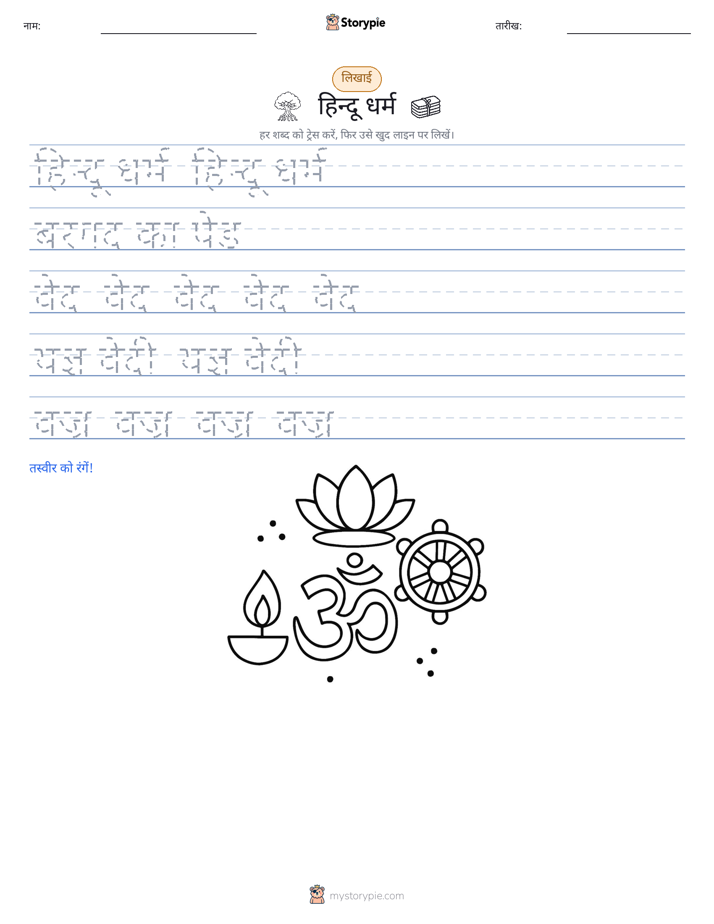 नाम:
Storypie
तारीख:
लिखाई
हिन्दू धर्म
हर शब्द को ट्रेस करें, फिर उसे खुद लाइन पर लिखें।
हिन्दू धर्म हिन्दू धर्म
बरगद का पेड
वेद वेद वेद वेद वेद
यज्ञ वेदी यज्ञ वेदी
वज्र वज्र वज्र वज्र
तस्वीर को रंगें!
ॐ
mystorypie.com